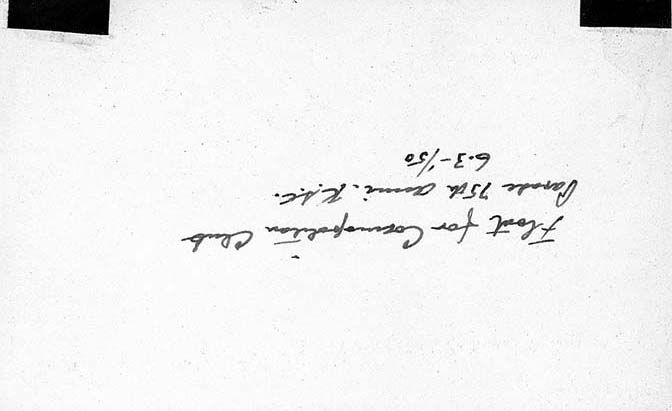 Float for Cosmopolitan Club
Parade 75th Anni. K.S.C.
6-3-'50